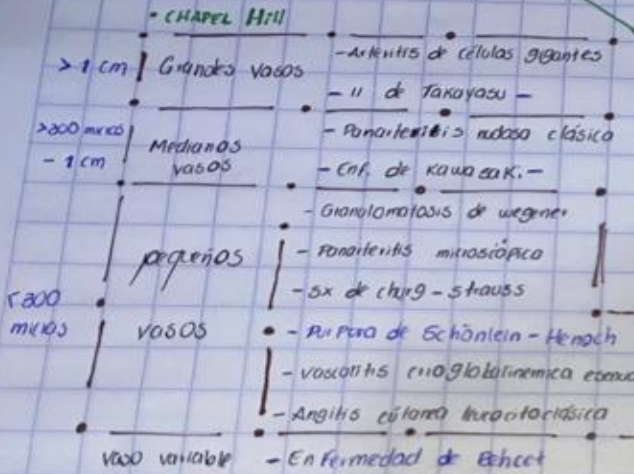 · CHAPEL Hill
> 1 cm Grandes vasos - Arteritis de células gigantes
- 11 de Takayasu -
>300 micras - 1 cm Medianos vasos - Panarteritis nudosa clásica
- Enf. de Kawasaki. -
<300 micras pequeños vasos - Granolomatosis de wegener
- Panarteritis microscópica
- sx de churg - strauss
- Púrpura de Schönlein - Henoch
- vasculitis crioglobulinemica
- Angitis cútanea leucocitoclásica
vaso variable - Enfermedad de Behcet